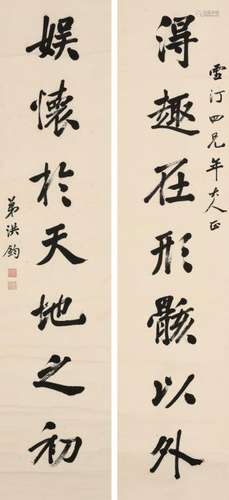 得趣在形骸以外
雪汀四兄年大人正
娱懷於天地之初
弟洪鈞